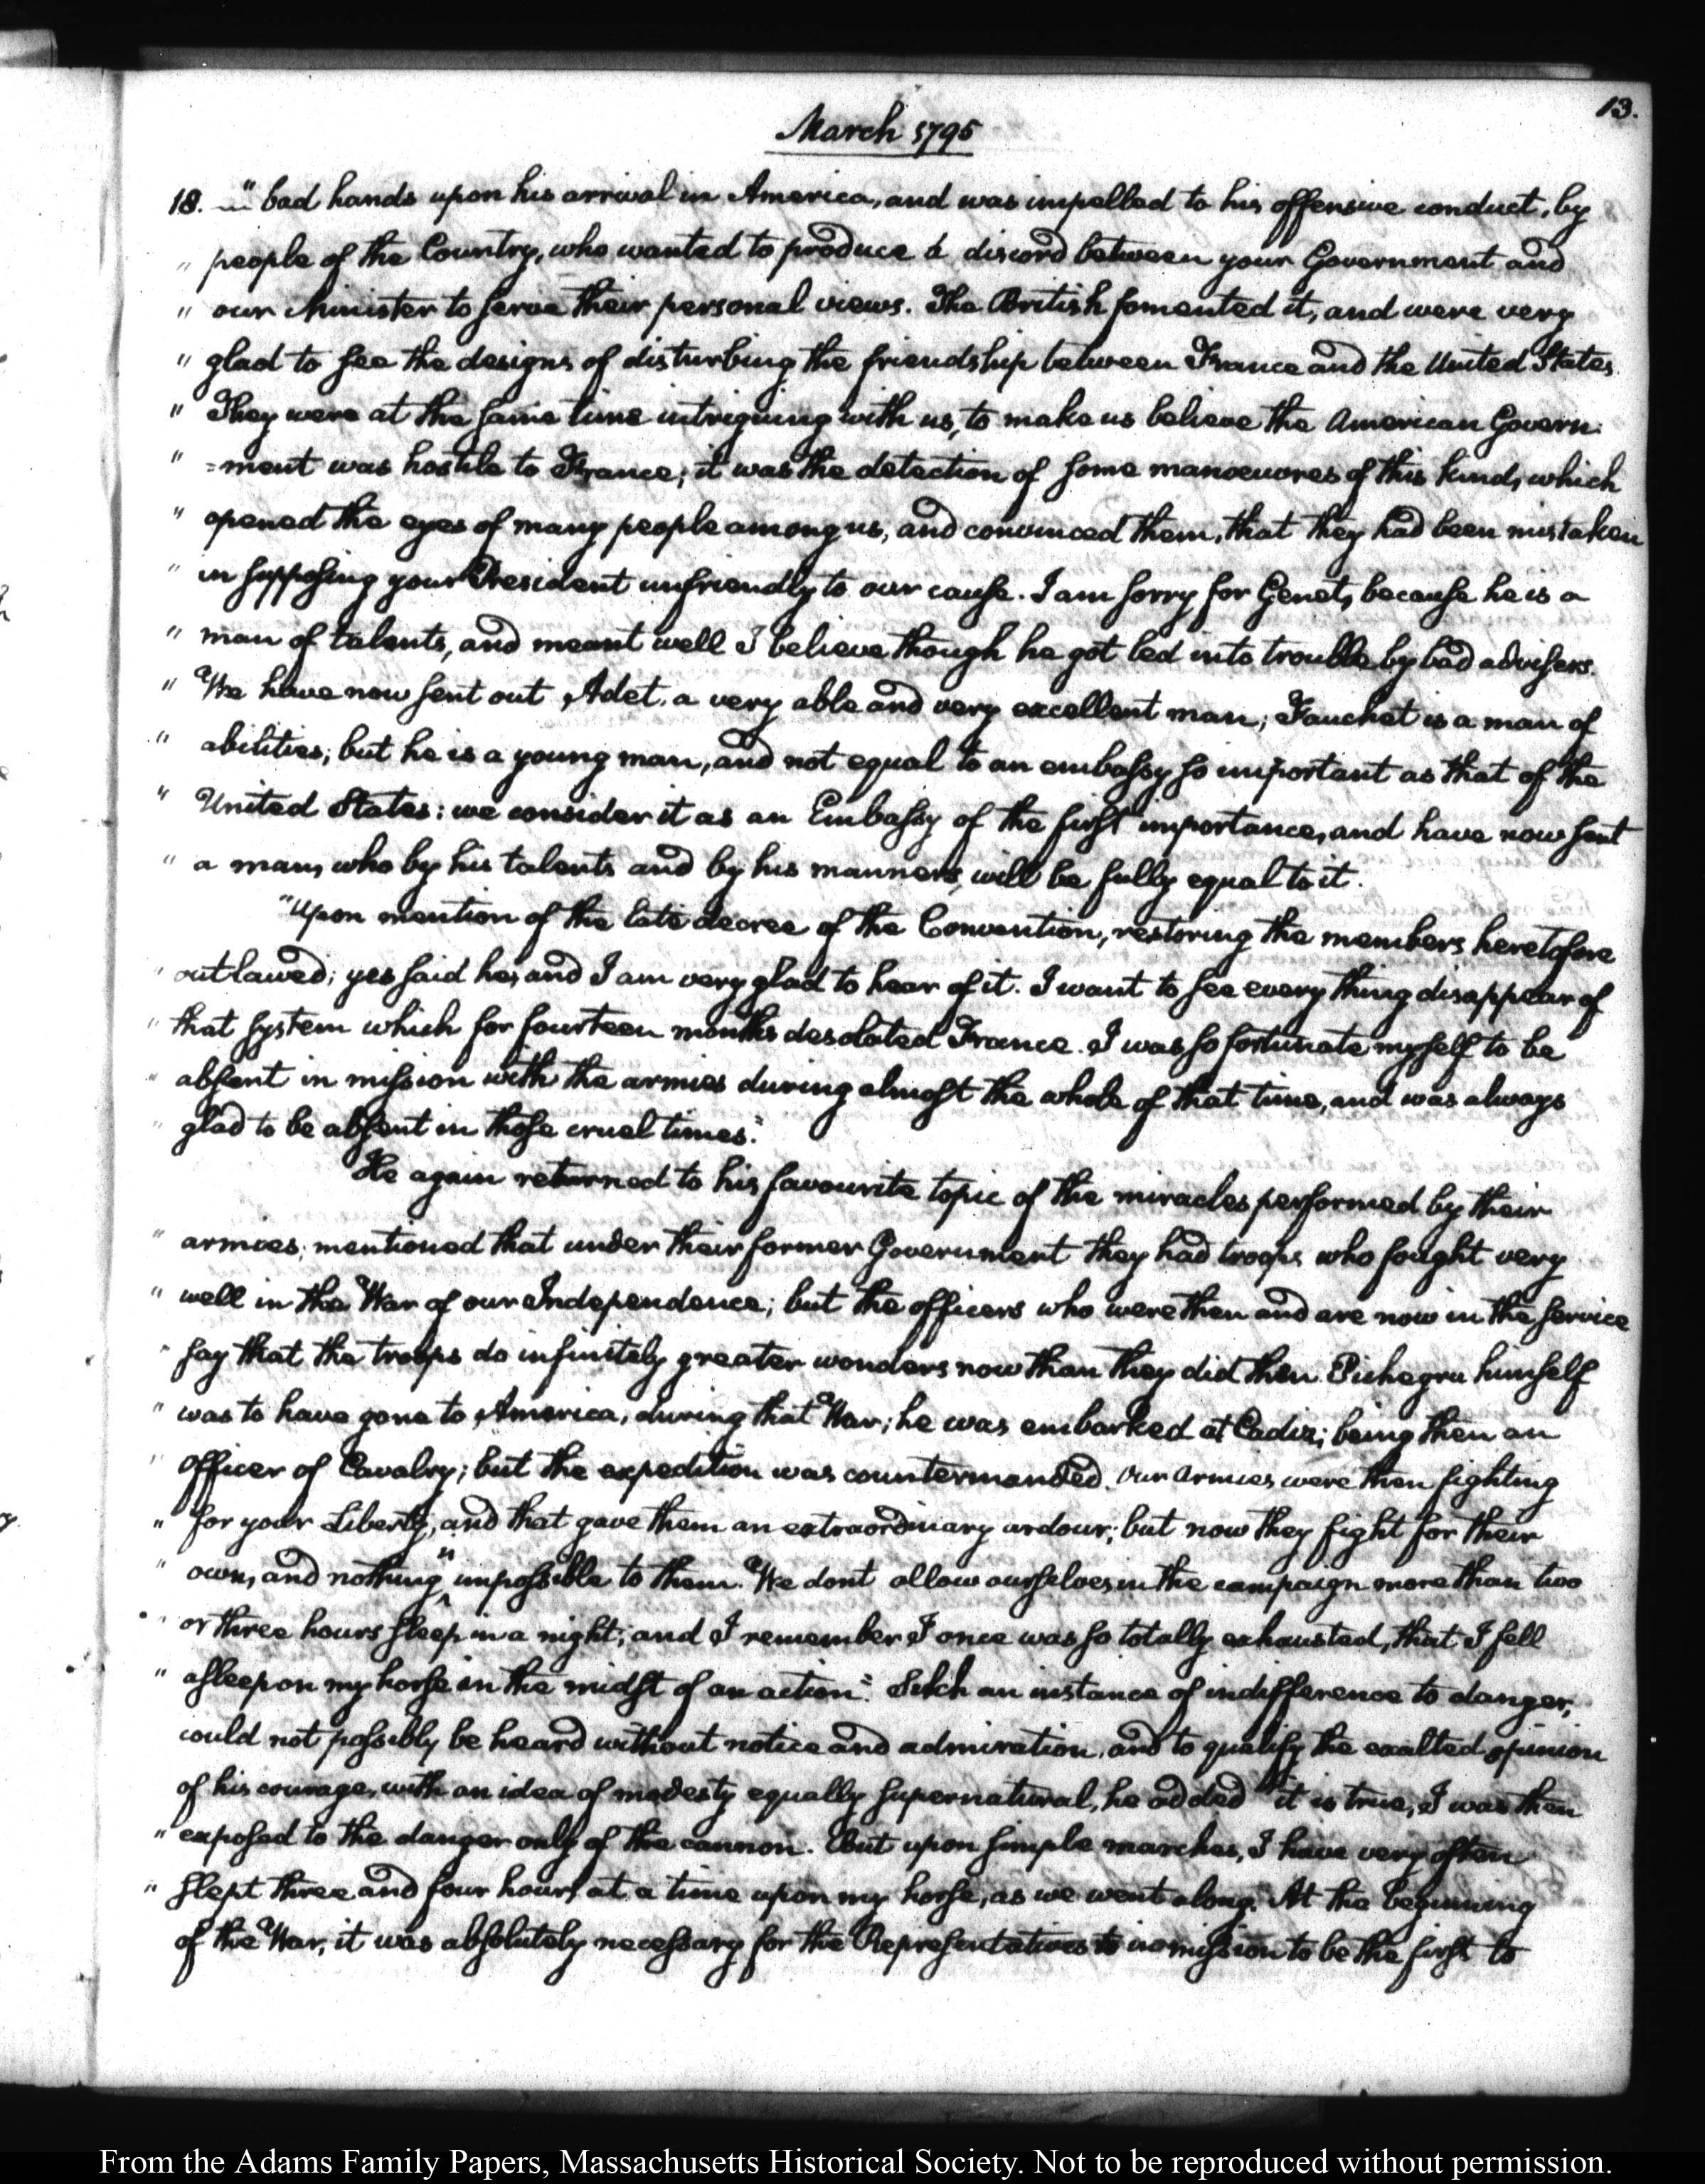 13.
March 1795
18. — " bad hands upon his arrival in America, and was impelled to his offensive conduct, by
" people of the Country, who wanted to produce a discord between your Government and
" our Minister to serve their personal views. The British fomented it, and were very
" glad to see the designs of disturbing the friendship between France and the United States.
" They were at the same time intriguing with us, to make us believe the American Govern-
" =ment was hostile to France; it was the detection of some manoeuvres of this kind, which
" opened the eyes of many people among us, and convinced them, that they had been mistaken
" in supposing your President unfriendly to our cause. I am sorry for Genet, because he is a
" man of talents, and meant well I believe though he got led into trouble by bad advisers.
" We have now sent out Adet, a very able and very excellent man; Fauchet is a man of
" abilities; but he is a young man, and not equal to an embassy so important as that of the
" United States: we consider it as an Embassy of the first importance, and have now sent
" a man, who by his talents and by his manners, will be fully equal to it.
"Upon mention of the late decree of the Convention, restoring the members heretofore
" outlawed; yes said he, and I am very glad to hear of it. I want to see every thing disappear of
" that system which for fourteen months desolated France. I was so fortunate myself to be
" absent in mission with the armies during almost the whole of that time, and was always
" glad to be absent in those cruel times."
He again returned to his favourite topic of the miracles performed by their
" armies; mentioned that under their former Government they had troops who fought very
" well in the War of our Independence; but the officers who were then and are now in the service
" say that the troops do infinitely greater wonders now than they did then. Pichegru himself
" was to have gone to America, during that War; he was embarked at Cadiz; being then an
" officer of Cavalry; but the expedition was countermanded. Our armies were then fighting
" for your Liberty, and that gave them an extraordinary ardour; but now they fight for their
" own, and nothing is impossible to them. We dont allow ourselves in the campaign more than two
" or three hours sleep in a night; and I remember I once was so totally exhausted, that I fell
" asleep on my horse in the midst of an action." Such an instance of indifference to danger,
could not possibly be heard without notice and admiration, and to qualify the exalted opinion
of his courage, with an idea of modesty equally supernatural, he added "it is true, I was then
" exposed to the danger only of the cannon. But upon simple marches, I have very often
" slept three and four hours at a time upon my horse, as we went along. At the beginning
of the War, it was absolutely necessary for the Representatives in mission to be the first to
From the Adams Family Papers, Massachusetts Historical Society. Not to be reproduced without permission.